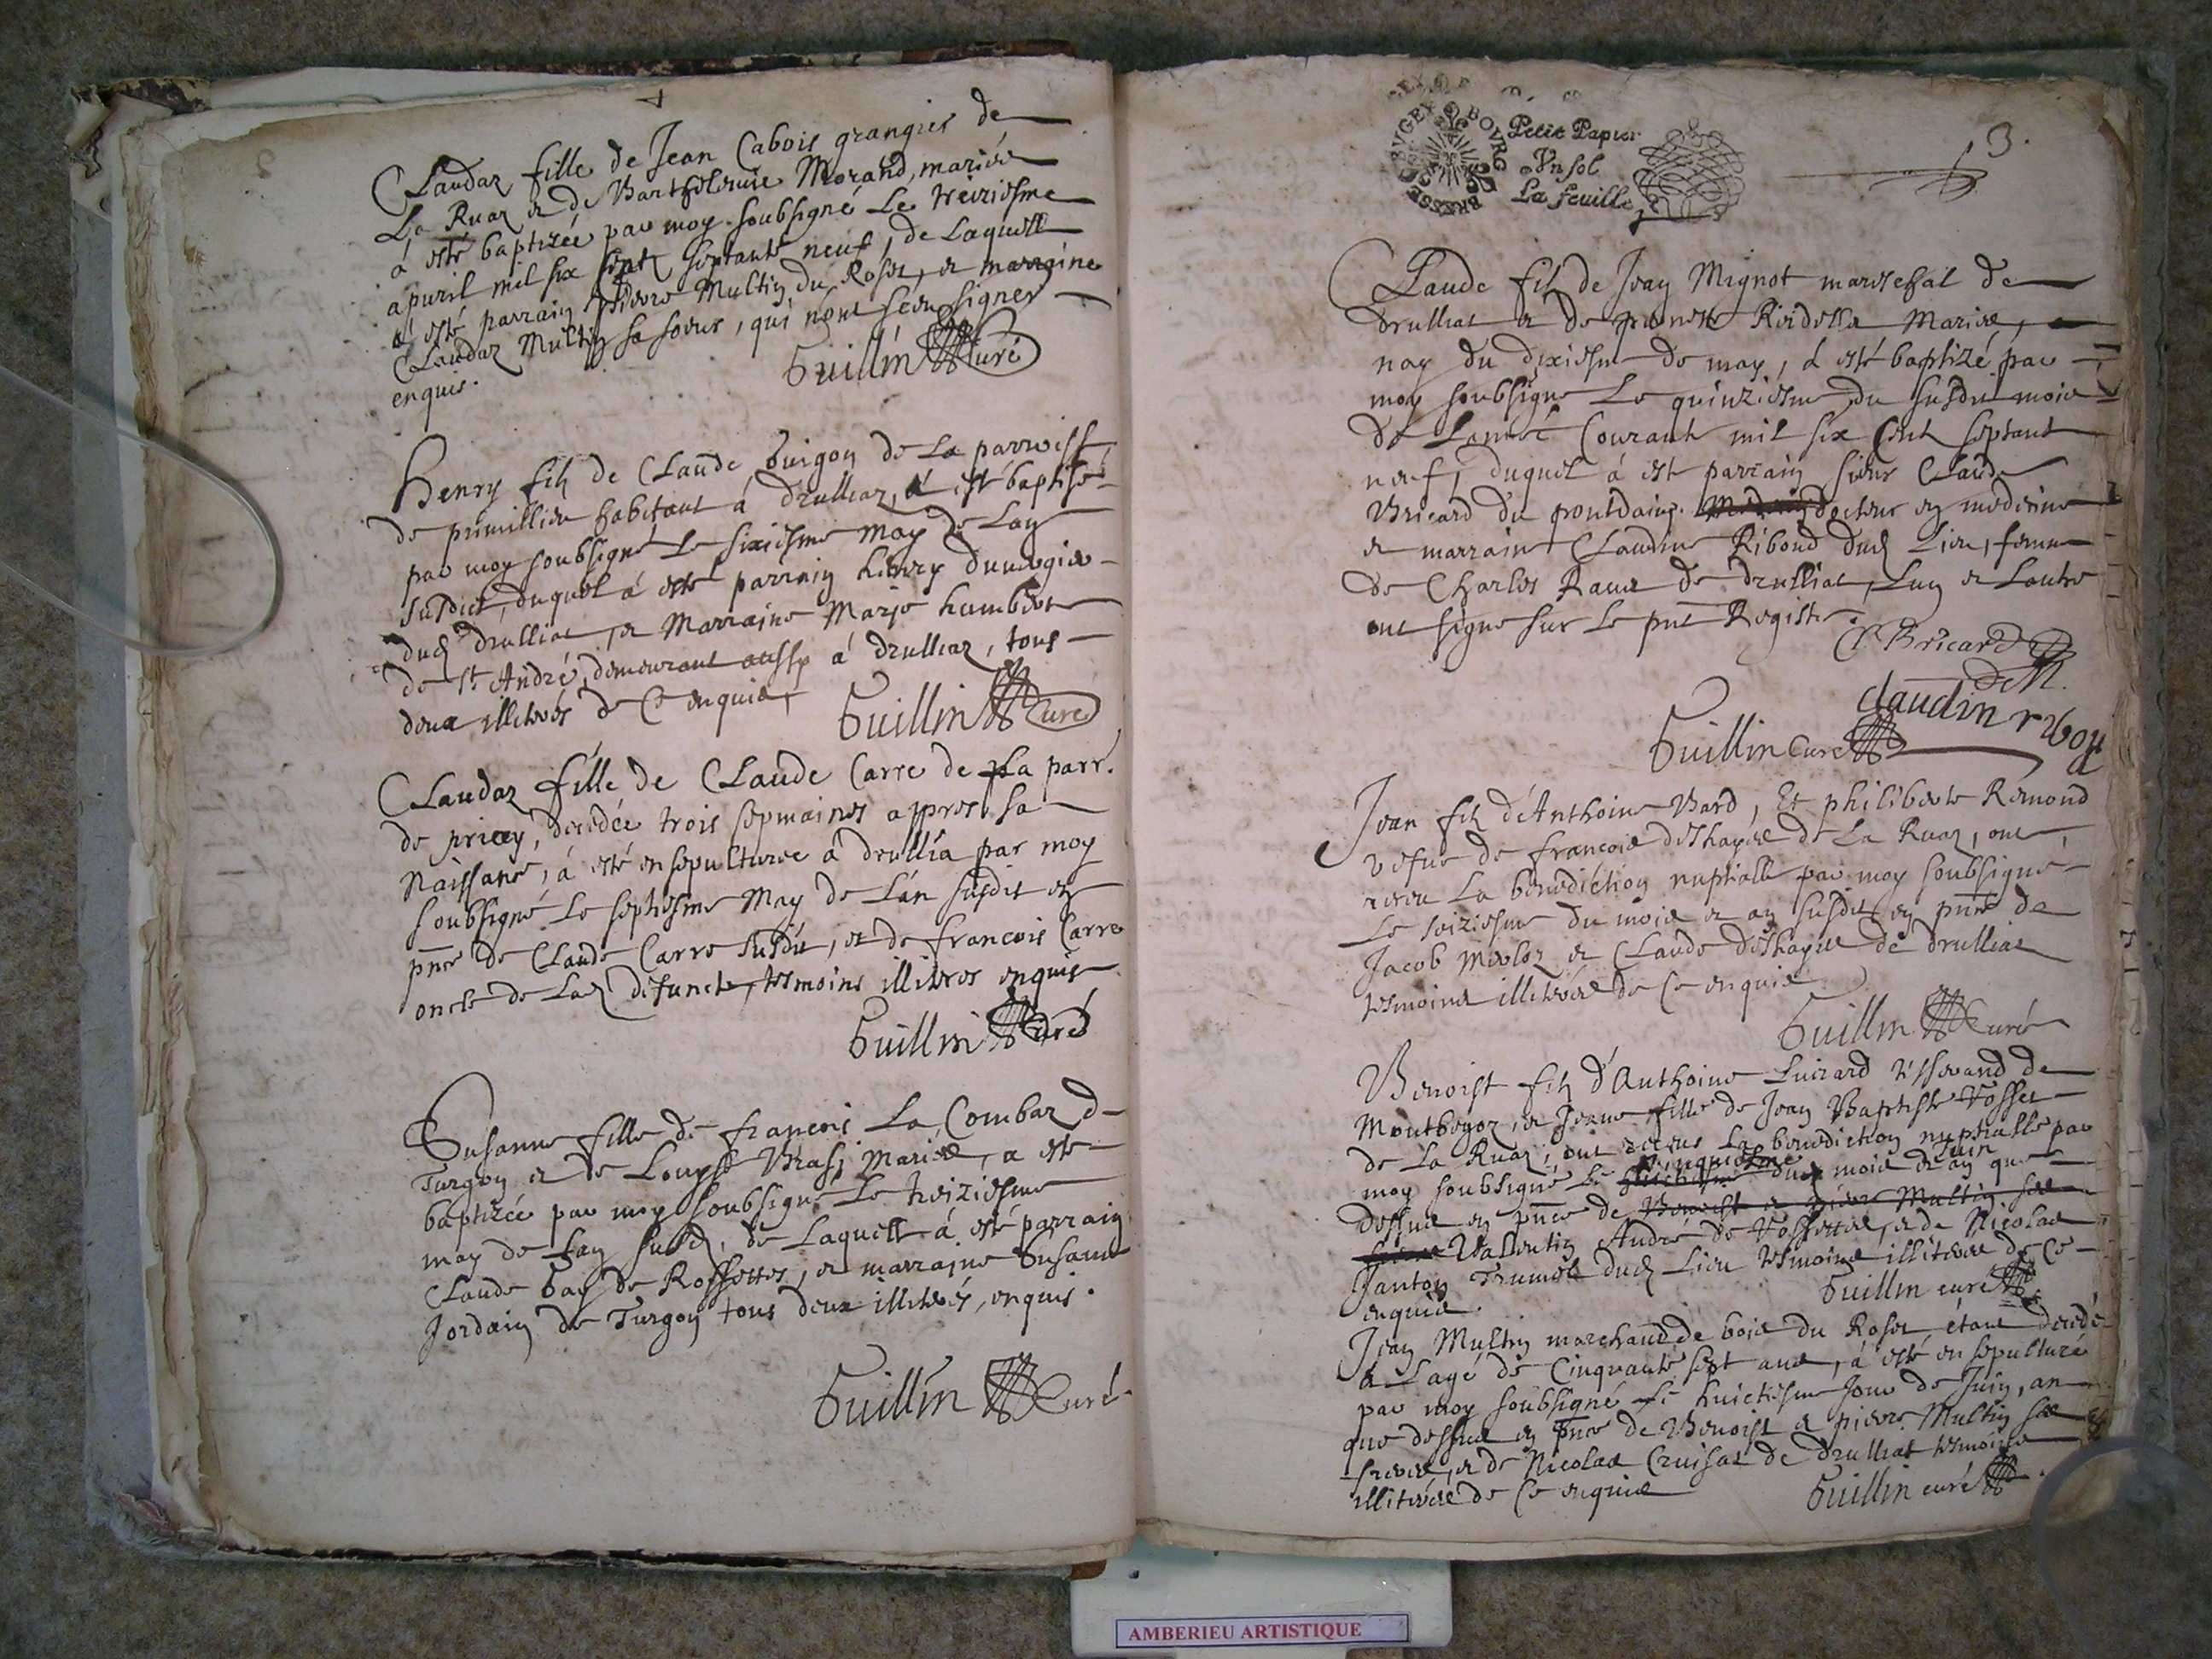 Claudaz fille de Jean Cabois grangier de
La Ruaz et de Barthelemie Morand, mariés
a esté baptizée par moy soubsigné Le treiziesme
apuril mil six cents septante neuf, de Laquelle
a esté parrain Multin du Roset, et marraine
Claudaz Multin sa soeur, qui n'ont sceu signer
enquis.
Guillin Curé
Henry filz de Claude Guigon de La parroisse
de primillieu habitant à drulliaz, a esté baptisé
par moy soubsigné Le sixiesme May de Lan
susdict, duquel a esté parrain henry
dud drulliat, et Marraine Marie humbert
de St André, demeurant aussy à drulliaz, tous
deux illiterés de Ce enquis
Guillin Curé
Claudaz fille de Claude Carre de La parr.
de priay, decedée trois sepmaines appres sa
Naissance, à esté ensepulturee à drullia par moy
soubsigné Le septiesme May de L'an susdit en
pnce de Claude Carre susdit, et de francois Carre
oncle de Lad defuncte, tesmoins illiteres enquis
Guillin Curé
Susanne fille de francois La Combaz de
Turgon et de Louyse Brasi Mariés, a esté
baptizée par moy soubsigné Le treiziesme
may de Lan susd, de Laquelle à esté parrain
Claude Gay de Rossettes, et marraine Susanne
Jordain de Turgon tous deux illiterés, enquis.
Guillin Curé
BRESSE BVGEY BOVRG
Petit Papier
Vn sol
La feuille
3.
Claude filz de Jean Mignot mareschal de
drulliat et de Reidellet Mariés,
nay du dixiesme de may, à esté baptizé par
moy soubsigné Le quinziesme du susdit mois
de Lannée Courant mil six Cent septant
neuf, duquel à est parrain sieur Claude
Bricard du pontdains docteur en medicine
et marraine Claudine Riboud dud Lieu, femme
de Charles Ravet de drulliat, Lun et Lautre
ont signe sur Le pnt Registre.
C Bricard
D M.
claudin riboy
Guillin Curé
Jean filz d'Anthoine Bard, Et philiberte Remond
vefue de francois deshayes de La Ruaz, ont
receu La benediction nuptialle par moy soubsigné
Le seiziesme du mois et an susdit en pnce de
Jacob Merloz et Claude deshayes de drulliat
tesmoins illiterés de Ce enquis
Guillin Curé
Benoist filz d'Anthoine Luirard tisserand de
Montbegoz, et Jeanne fille de Jean Baptiste Vosset
de La Ruaz, ont receus La benediction nuptialle par
moy soubsigné Le cinquiesme Juin dud mois et an que
dessus en pnce de Benoist et pierre Multin ses
Valentin André de Rossettes, et de Nicolas
Janton dud Lieu tesmoins illiterés de Ce
enquis.
Guillin curé
Jean Multin marchand de bois du Roset étant decedé
à Lagé de Cinquante sept ans, à esté ensepulturé
par moy soubsigné Le huictiesme Jour de Juin, an
que dessus en pnce de Benoist et pierre Multin ses
freres, et de Nicolas Cruisat de drulliat tesmoins
illiterés de Ce enquis
Guillin curé
AMBERIEU ARTISTIQUE